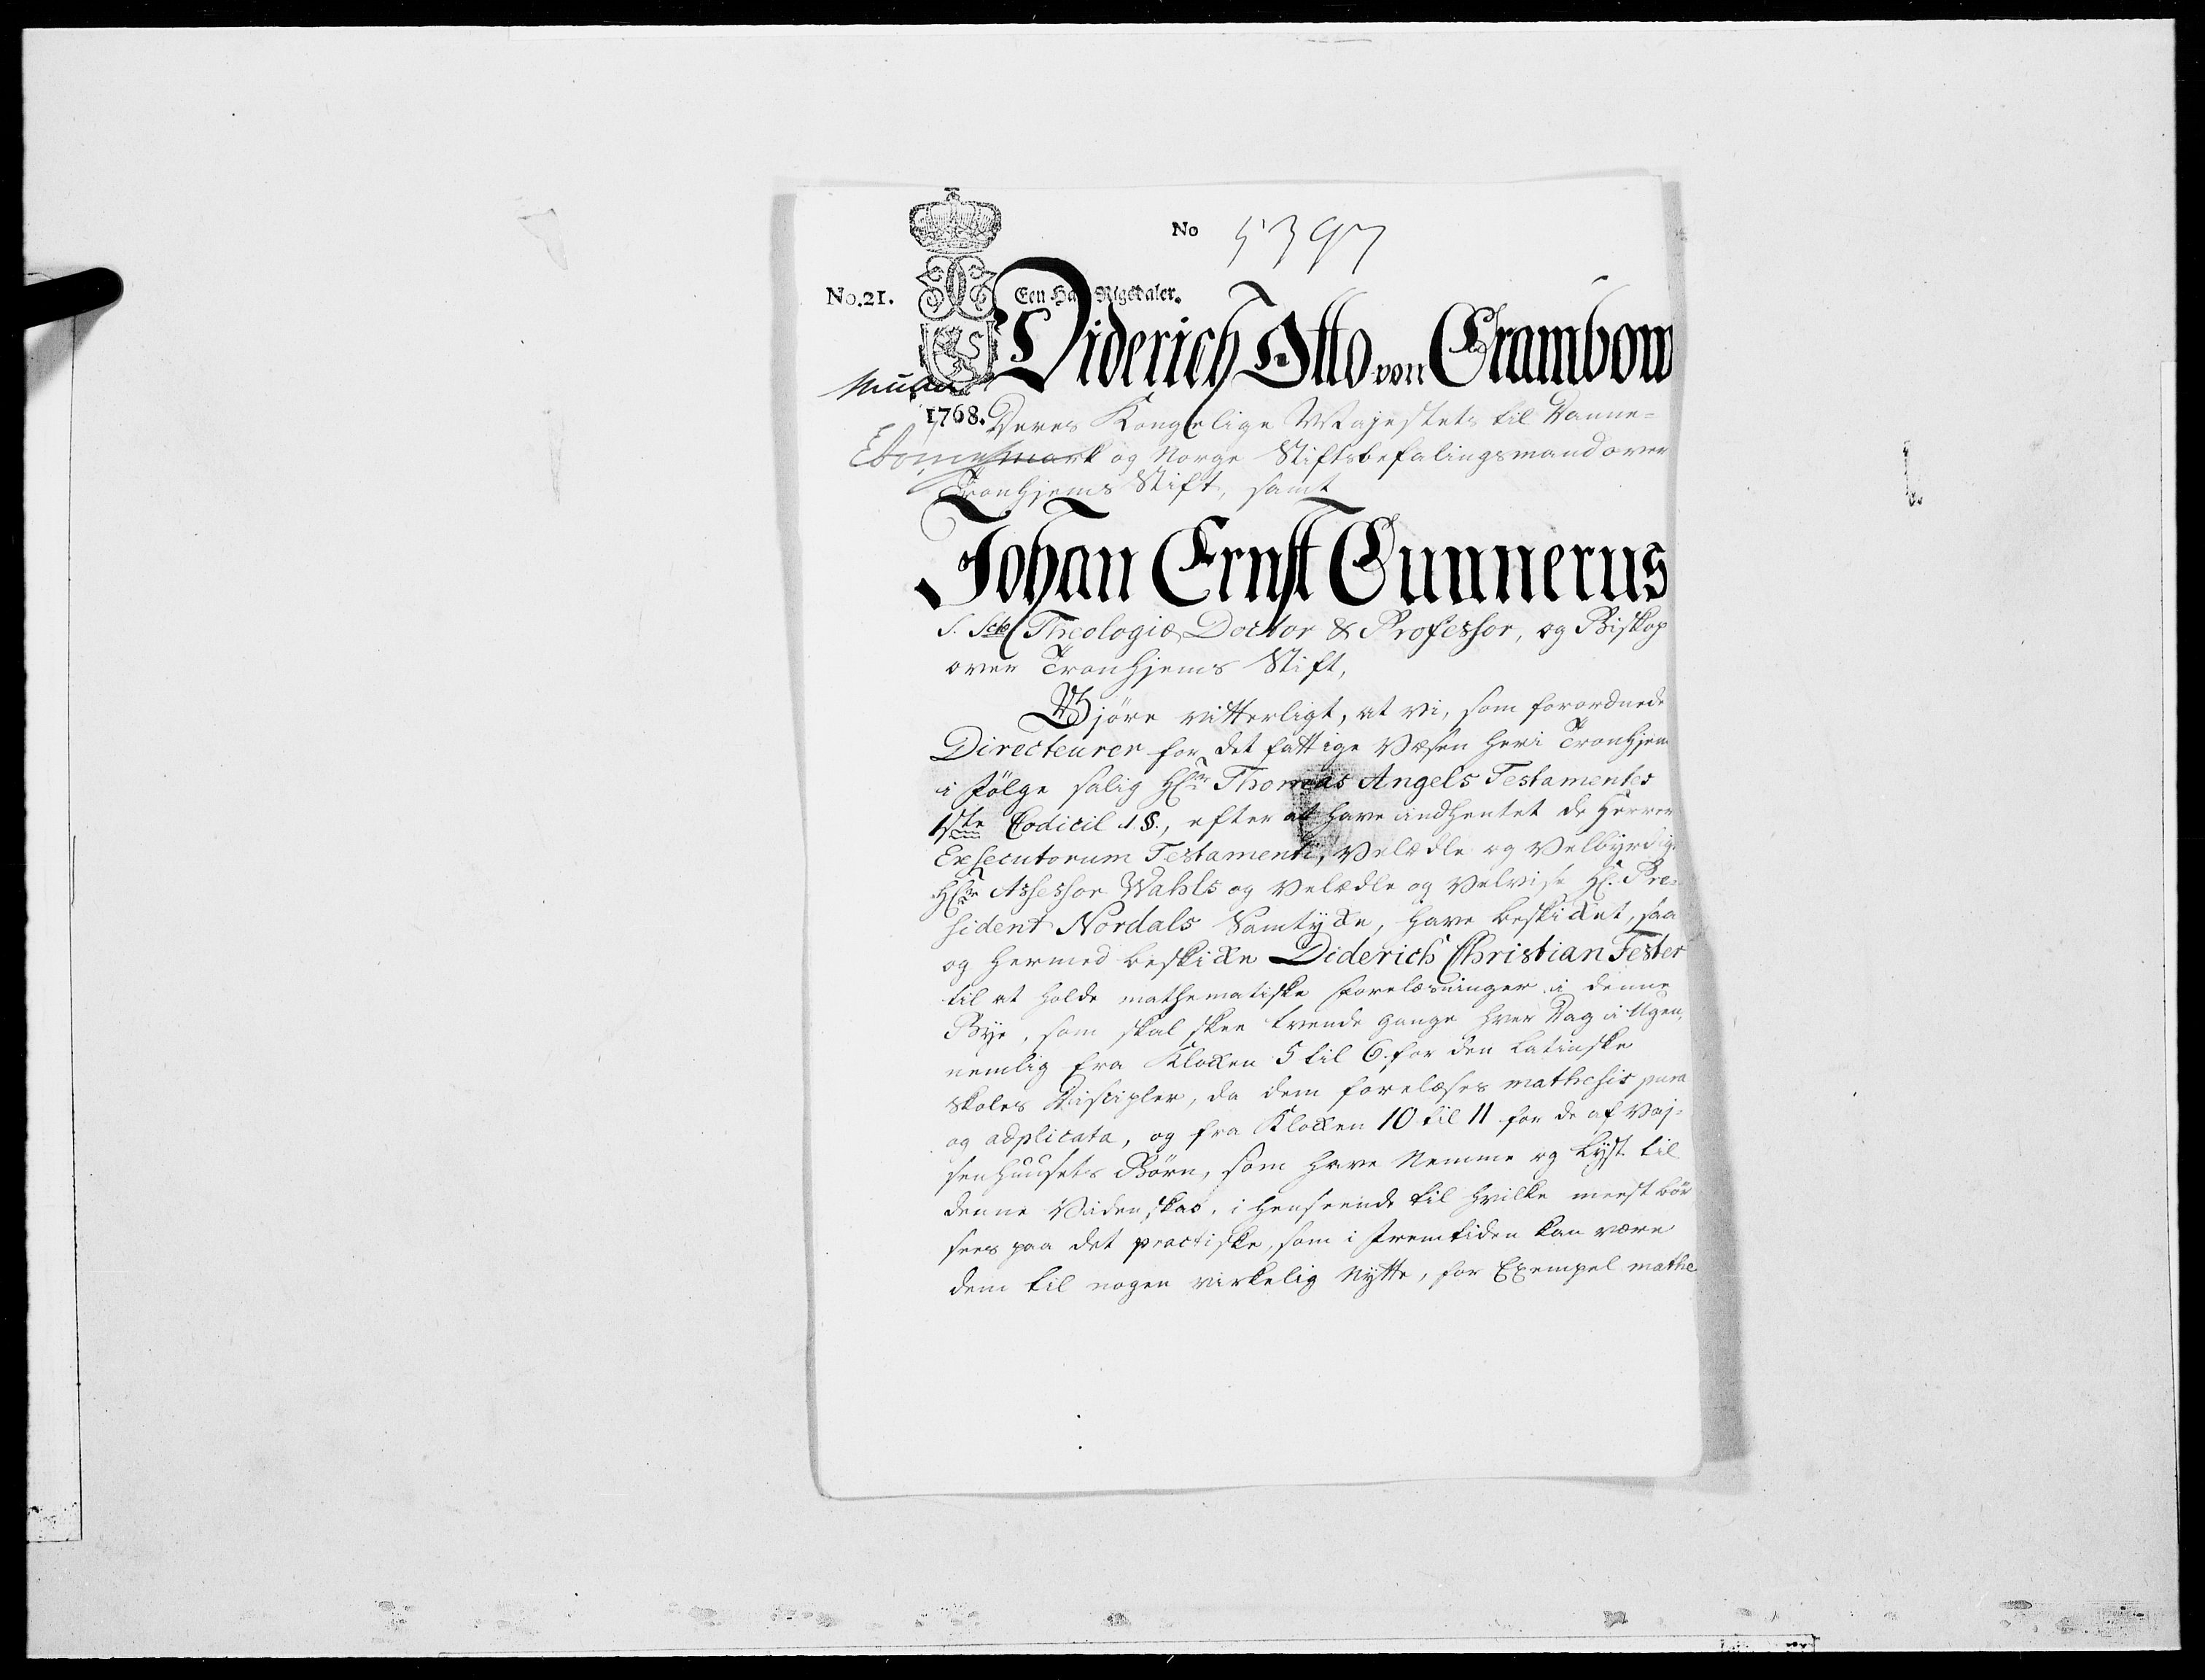 No 5397
No.21.
Een Halv Rigsdaler.
Diderich Otto von Grambow
1768. Deres Kongelige Majestets til Danne=
mark og Norge Stiftsbefalingsmand over
Tronhjems Stift, samt
Johan Ernst Gunnerus
S. Sctæ Theologiæ Doctor & Professor, og Biskop
over Tronhjems Stift,
Gjøre vitterligt, at vi, som forordnede
Directeurer for det fattige Væsen her i Tronhjem
i Følge salig Hr Thomas Angels Testamentes
1ste Codicil 1. §., efter at have indhentet de Herrer
Exsecutorum Testamenti, Velædle og Velbyrdige
Hr Assessor Wahls og Velædle og Velvise Hr. Præ=
sident Nordals Samtykke, have beskikket, saa
og hermed beskikke Diderich Christian Fester
til at holde mathematiske Forelæsninger i denne
Bye, som skal skee tvende gange hver Dag i Ugen,
nemlig fra Klokken 5 til 6 for den latinske
Skoles Discipler, da dem forelæses mathesis pura
og adplicata, og fra Klokken 10 til 11 for de af Vaj=
senhuusets Børn, som have Nemme og Lyst til
denne Videnskab, i henseende til hvilke meest bør
sees paa det practiske, som i Fremtiden kan være
dem til nogen virkelig Nytte, for Exempel mathe